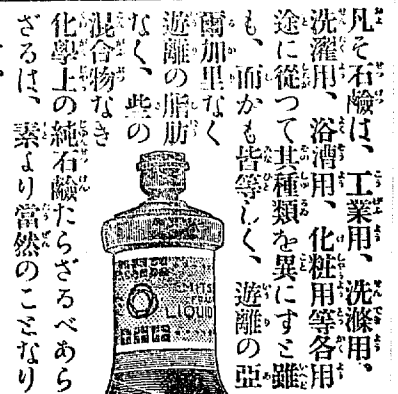 凡そ石鹼は、工業用、洗滌用、
洗濯用、浴漕用、化粧用等各用
途に從つて其種類を異にすと雖
も、而かも皆等しく、遊離の亞
爾加里なく
遊離の脂肪
なく、些の
混合物なき
化學上の純石鹼たらざるべあら
ざるは、素より當然のことなり
LIQUID